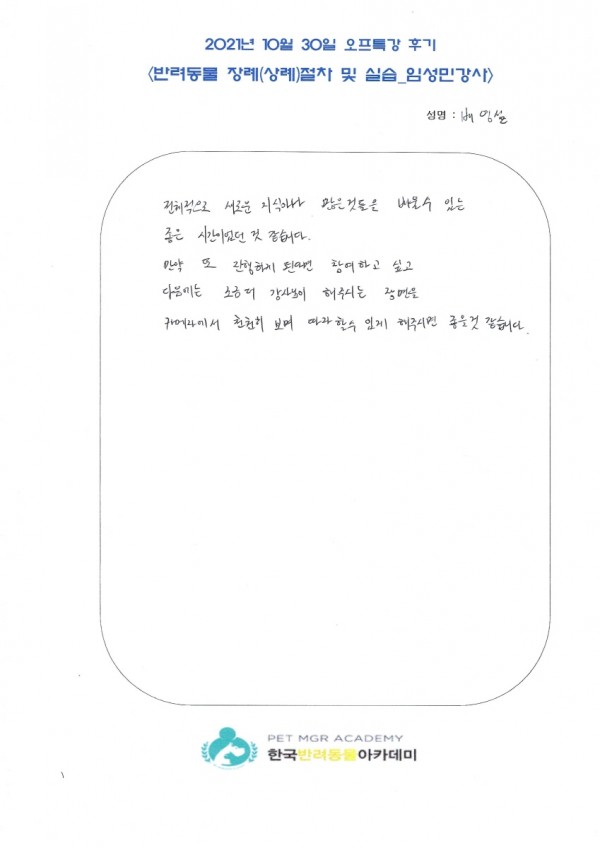 2021년 10월 30일 오프특강 후기
<반려동물 장례(상례)절차 및 실습_임성민강사>
성명 : 배
전체적으로 새로운 지식이나 많은것들을 배울수 있는
좋은 시간이었던 것 같습니다.
만약 또 진행하게 된다면 참여하고 싶고
다음에는 조금 더 강사님이 해주시는 장면을
카메라에서 천천히 보며 따라할수 있게 해주시면 좋을것 같습니다.
PET MGR ACADEMY
한국반려동물아카데미